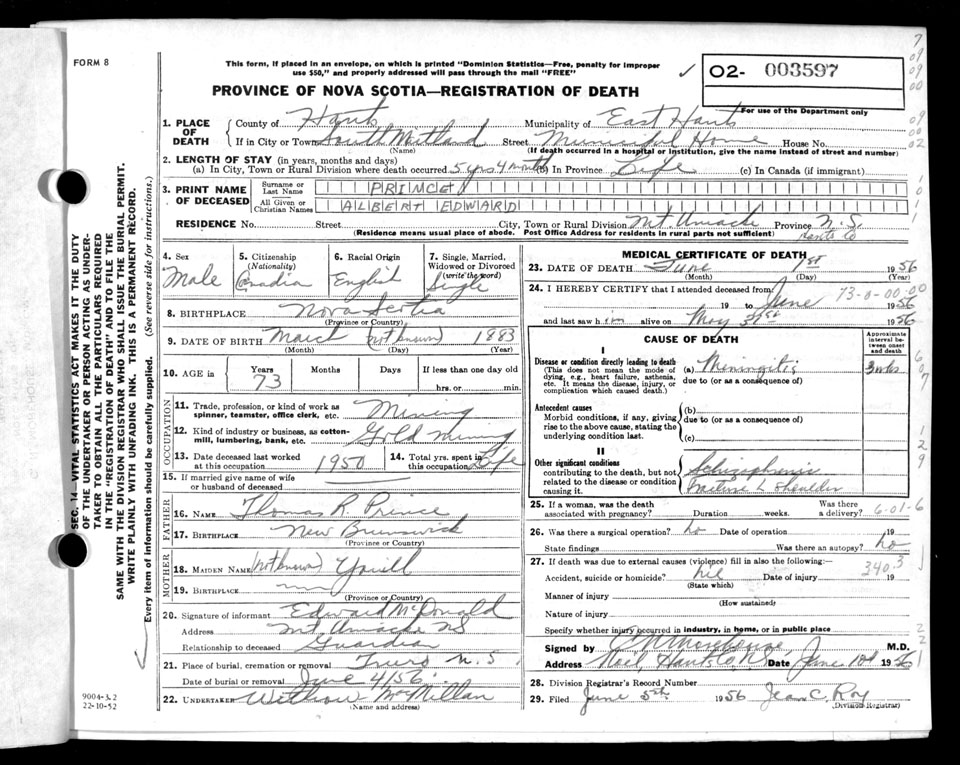 FORM 8
This form, if placed in an envelope, on which is printed "Dominion Statistics—Free, penalty for improper
use $50," and properly addressed will pass through the mail "FREE"
O2- 003597
For use of the Department only
PROVINCE OF NOVA SCOTIA—REGISTRATION OF DEATH
1. PLACE OF DEATH
County of Hants Municipality of East Hants
If in City or Town South Maitland Street Municipal Home House No.
(Name) (If death occurred in a hospital or institution, give the name instead of street and number)
2. LENGTH OF STAY (in years, months and days)
(a) In City, Town or Rural Division where death occurred 5 yrs 4 months (b) In Province Life (c) In Canada (if immigrant)
3. PRINT NAME OF DECEASED
Surname or Last Name PRINCE
All Given or Christian Names ALBERT EDWARD
RESIDENCE No. Street City, Town or Rural Division Mt. Uniacke Province N.S.
Hants Co
(Residence means usual place of abode. Post Office Address for residents in rural parts not sufficient)
4. Sex Male
5. Citizenship (Nationality) Canadian
6. Racial Origin English
7. Single, Married, Widowed or Divorced (write the word) Single
8. BIRTHPLACE Nova Scotia
(Province or Country)
9. DATE OF BIRTH March (not known) 1883
(Month) (Day) (Year)
10. AGE in Years 73 Months Days If less than one day old
hrs. or min.
OCCUPATION
11. Trade, profession, or kind of work as spinner, teamster, office clerk, etc. Mining
12. Kind of industry or business, as cotton-mill, lumbering, bank, etc. Gold Mining
13. Date deceased last worked at this occupation 1950
14. Total yrs. spent in this occupation Life
15. If married give name of wife or husband of deceased
FATHER
16. NAME Thomas R Prince
17. BIRTHPLACE New Brunswick
(Province or Country)
MOTHER
18. MAIDEN NAME (not known) Youill
19. BIRTHPLACE
(Province or Country)
20. Signature of informant Edward McDonald
Address Mt Uniacke NS
Relationship to deceased Guardian
21. Place of burial, cremation or removal Truro N.S
Date of burial or removal June 4/56
22. UNDERTAKER Withrow McMillan
(Name and address)
MEDICAL CERTIFICATE OF DEATH
23. DATE OF DEATH June 1st 1956
(Month) (Day) (Year)
24. I HEREBY CERTIFY that I attended deceased from 73-0-00-00
19 to June 1956
and last saw him alive on May 31st 1956
CAUSE OF DEATH
Approximate interval between onset and death
I
Disease or condition directly leading to death
(This does not mean the mode of dying, e.g., heart failure, asthenia, etc. It means the disease, injury, or complication which caused death.)
(a) Meningitis 3 wks
due to (or as a consequence of)
Antecedent causes
Morbid conditions, if any, giving rise to the above cause, stating the underlying condition last.
(b)
due to (or as a consequence of)
(c)
II
Other significant conditions
contributing to the death, but not related to the disease or condition causing it.
Schizophrenia
Fracture L Shoulder
25. If a woman, was the death associated with pregnancy? Duration weeks. Was there a delivery? 6-01-6
26. Was there a surgical operation? no Date of operation 19
State findings Was there an autopsy? no
27. If death was due to external causes (violence) fill in also the following:— 340.3
Accident, suicide or homicide? Date of injury 19
(State which)
Manner of injury
(How sustained)
Nature of injury
Specify whether injury occurred in industry, in home, or in public place
Signed by M.D.
Address Noel, Hants Co, Date June 1956
28. Division Registrar's Record Number
29. Filed June 5th 1956 Jean C. Roy
(Division Registrar)
SEC. 14 VITAL STATISTICS ACT MAKES IT THE DUTY
OF THE UNDERTAKER OR PERSON ACTING AS UNDER-
TAKER TO OBTAIN ALL THE PARTICULARS REQUIRED
IN THE "REGISTRATION OF DEATH" AND TO FILE THE
SAME WITH THE DIVISION REGISTRAR WHO SHALL ISSUE THE BURIAL PERMIT.
WRITE PLAINLY WITH UNFADING INK. THIS IS A PERMANENT RECORD.
Every item of information should be carefully supplied. (See reverse side for instructions.)
9004-3.2
22-10-52